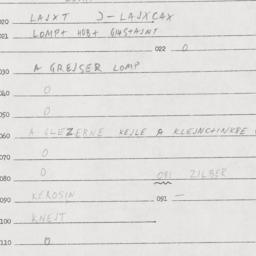 020 LAJXT J-LAJXCAX
021 LOMP+ HOB+ GIAS+AJNT
022 O
030 A GREJSER LOMP
040 O
050 O
060 A GLEZERNE KEJLE A KLEJNCHINKEE
070 O
080 O 081 ZILBER
090 KEROSIN 091 —
100 KNEJT
110 O